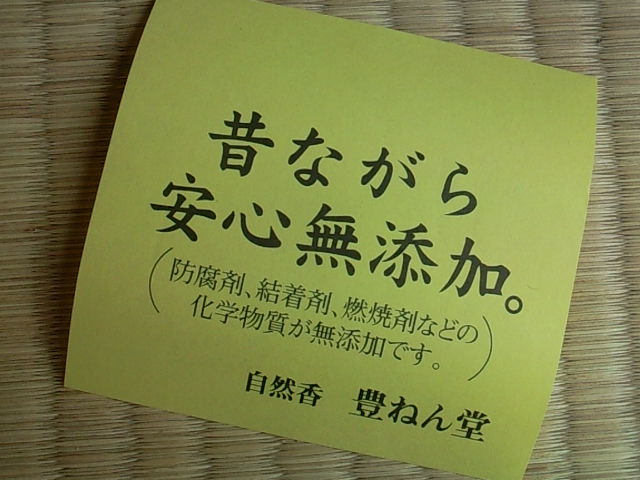 昔ながら
安心無添加。
(防腐剤、結着剤、燃焼剤などの
化学物質が無添加です。)
自然香 豊ねん堂